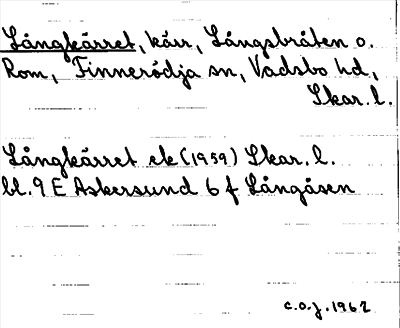 Långkärret, kärr, Långsbråten o.
Rom, Finnerödja sn, Vadsbo hd,
Skar. l.
Långkärret ek (1959) Skar. l.
bl. 9 E Askersund 6 f Långåsen
c.o.j. 1962